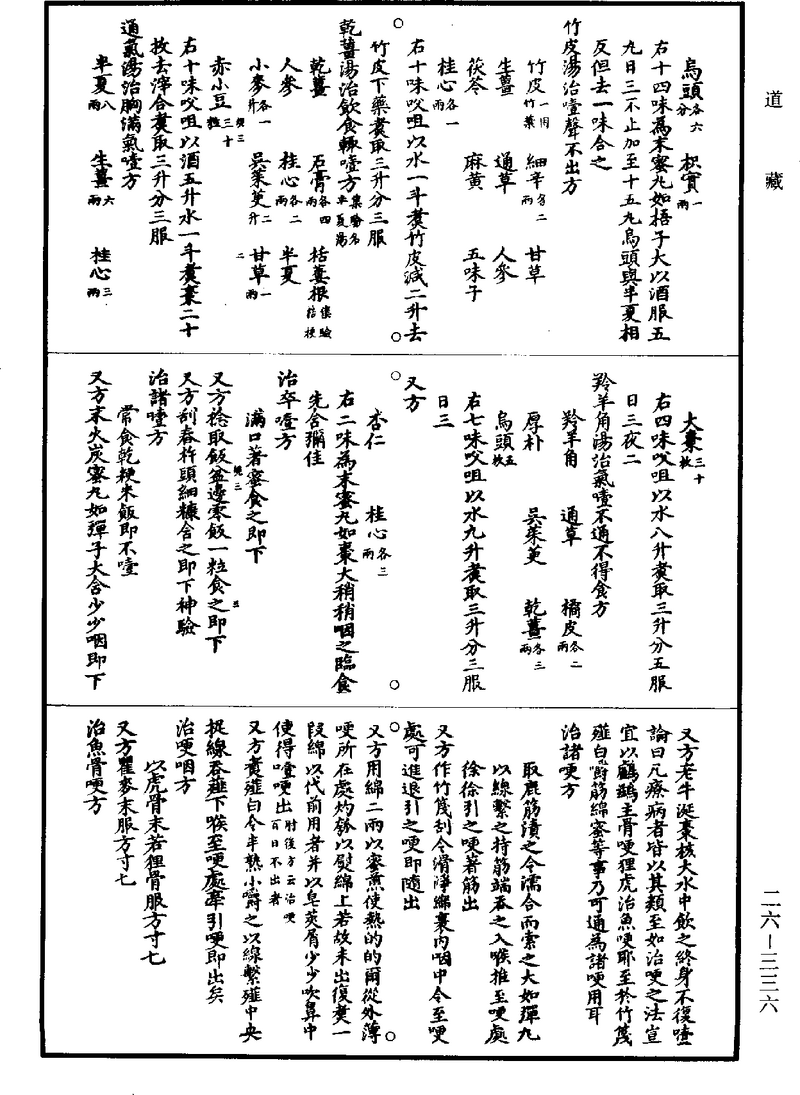 道藏
烏頭各六分 枳實一兩
右十四味為末蜜丸如梧子大以酒服五
九日三不止加至十五丸烏頭與半夏相
反但去一味合之
竹皮湯治噎聲不出方
竹皮一用竹葉 細辛各二兩 甘草
生薑 通草 人參
茯苓 麻黃 五味子
桂心各一兩
右十味㕮咀以水一斗煑竹皮減二升去
竹皮下藥煑取三升分三服
乾薑湯治飲食輒噎方集驗名半夏湯
乾薑 石膏各四兩 栝蔞根集驗桔梗
人參 桂心各二兩 半夏
小麥各一升 吳茱萸二升 甘草一兩
赤小豆三十粒
右十味㕮咀以酒五升水一斗煑棗二十
枚去滓合煑取三升分三服
通氣湯治胸滿氣噎方
半夏八兩 生薑六兩 桂心三兩
大棗三十枚
右四味㕮咀以水八升煑取三升分五服
日三夜二
羚羊角湯治氣噎不通不得食方
羚羊角 通草 橘皮各二兩
厚朴 吳茱萸 乾薑各三兩
烏頭五枚
右七味㕮咀以水九升煑取三升分三服
日三
又方
杏仁 桂心各三兩
右二味為末蜜丸如棗大稍稍咽之臨食
先含彌佳
治卒噎方
滿口著蜜食之即下
又方捻取飯盆邊零飯一粒食之即下
又方刮舂杵頭細糠含之即下神驗
治諸噎方
常食乾粳米飯即不噎
又方末火炭蜜丸如彈子大含少少咽即下
又方老牛涎棗核大水中飲之終身不復噎
論曰凡療病者皆以其類至如治哽之法豈
宜以鸕鷀主骨哽狸虎治魚哽耶至於竹篾
薤白嚼筋綿蜜等事乃可通為諸哽用耳
治諸哽方
取鹿筋漬之令濡合而索之大如彈丸
以線繫之持筋端吞之入喉推至哽處
徐徐引之哽著筋出
又方作竹篾刮令滑淨綿裹內咽中令至哽
處可進退引之哽即隨出
又方用綿二兩以蜜煎使熱的的爾從外薄
哽所在處灼瓠以熨綿上若故未出復煑一
段綿以代前用者并以皂莢屑少少吹鼻中
使得嚏哽出肘後方云治哽百日不出者
又方煑薤白令半熟小嚼之以線繫薤中央
捉線吞薤下喉至哽處牽引哽即出矣
治哽咽方
以虎骨末若狸骨服方寸七
又方瞿麥末服方寸七
治魚骨哽方
二六—三三六